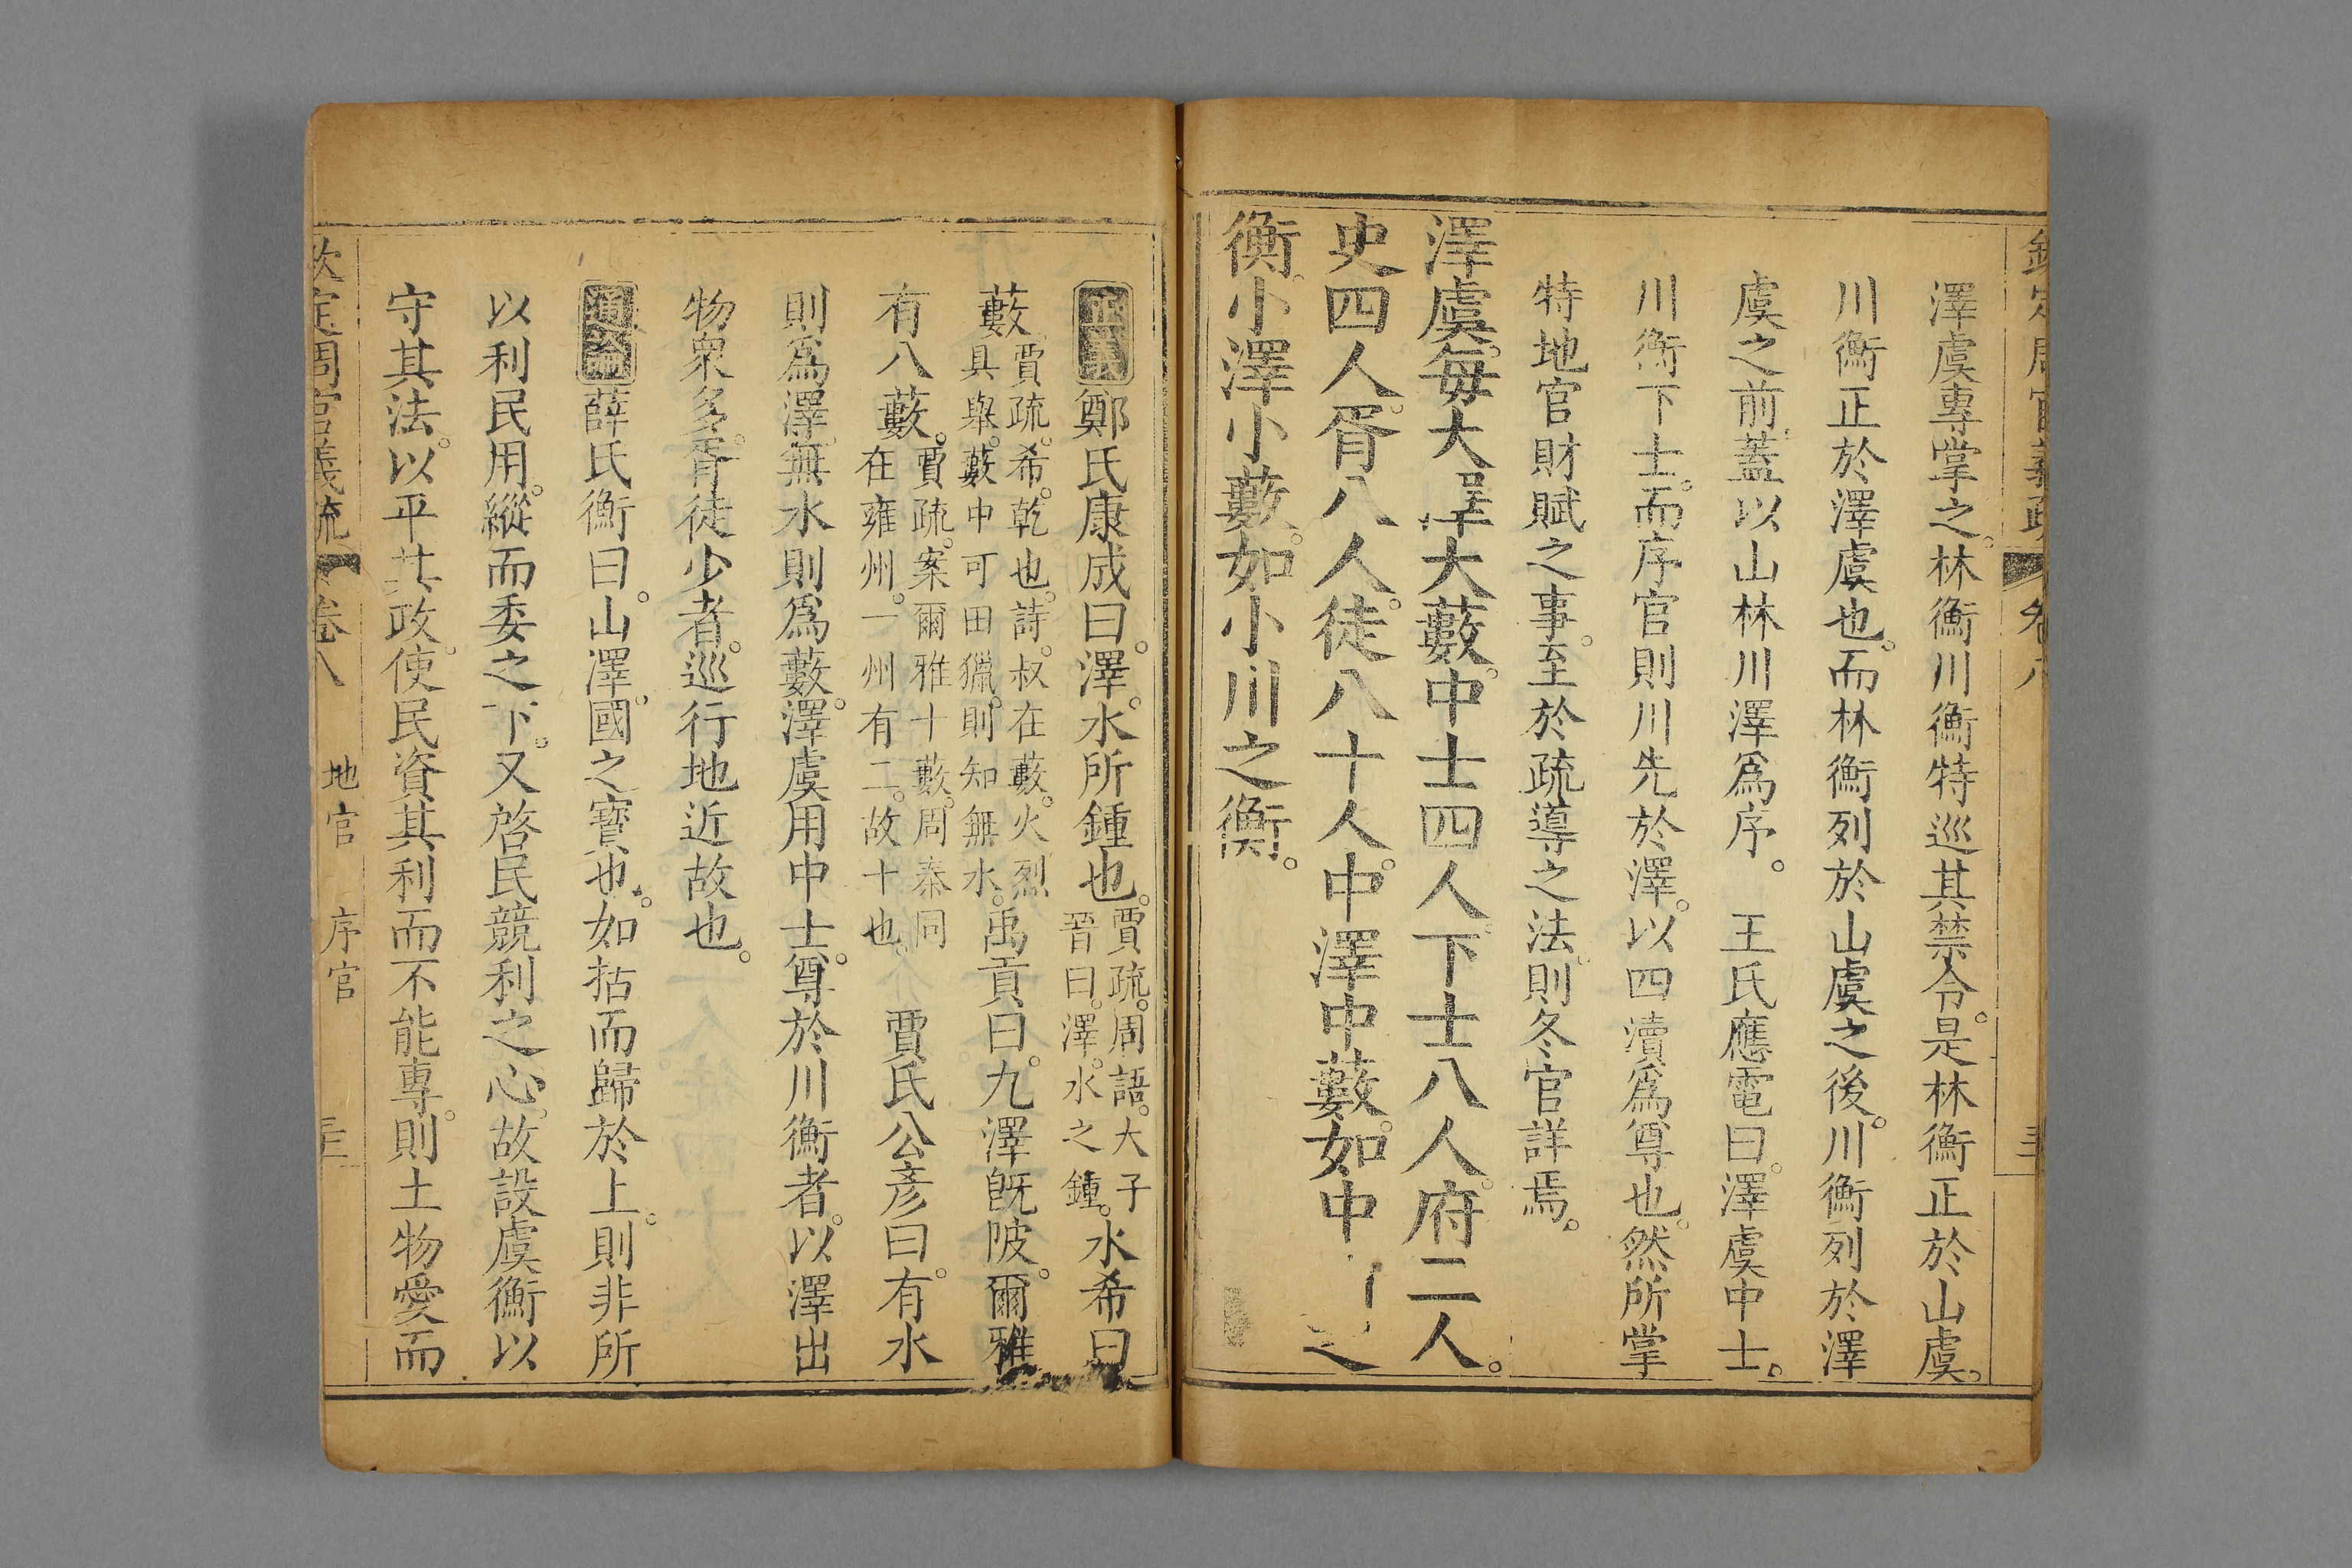 澤虞專掌之林衡川衡特巡其禁令是林衡正於山虞
川衡正於澤虞也而林衡列於山虞之後川衡列於澤
虞之前蓋以山林川澤爲序。 王氏應電曰澤虞中士
川衡下士而序官則川先於澤以四瀆爲尊也然所掌
特地官財賦之事至於疏導之法則冬官詳焉
澤虞每大澤大藪中士四人下士八人府二人
史四人胥八人徒八十人中澤中藪如中之
衡小澤小藪如小川之衡
正義鄭氏康成曰澤水所鍾也賈疏周語大子晉曰澤水之鍾水希曰
藪賈疏希乾也詩叔在藪火烈具舉藪中可田獵則知無水禹貢曰九澤旣陂爾雅
有八藪賈疏案爾雅十藪周秦同在雍州一州有二故十也 賈氏公彥曰有水
則爲澤無水則爲藪澤虞用中士尊於川衡者以澤出
物衆多胥徒少者巡行地近故也
通論薛氏衡曰山澤國之寶也如括而歸於上則非所
以利民用縱而委之下又啓民競利之心故設虞衡以
守其法以平其政使民資其利而不能專則土物愛而
欽定周官義疏 卷八 地官 序官